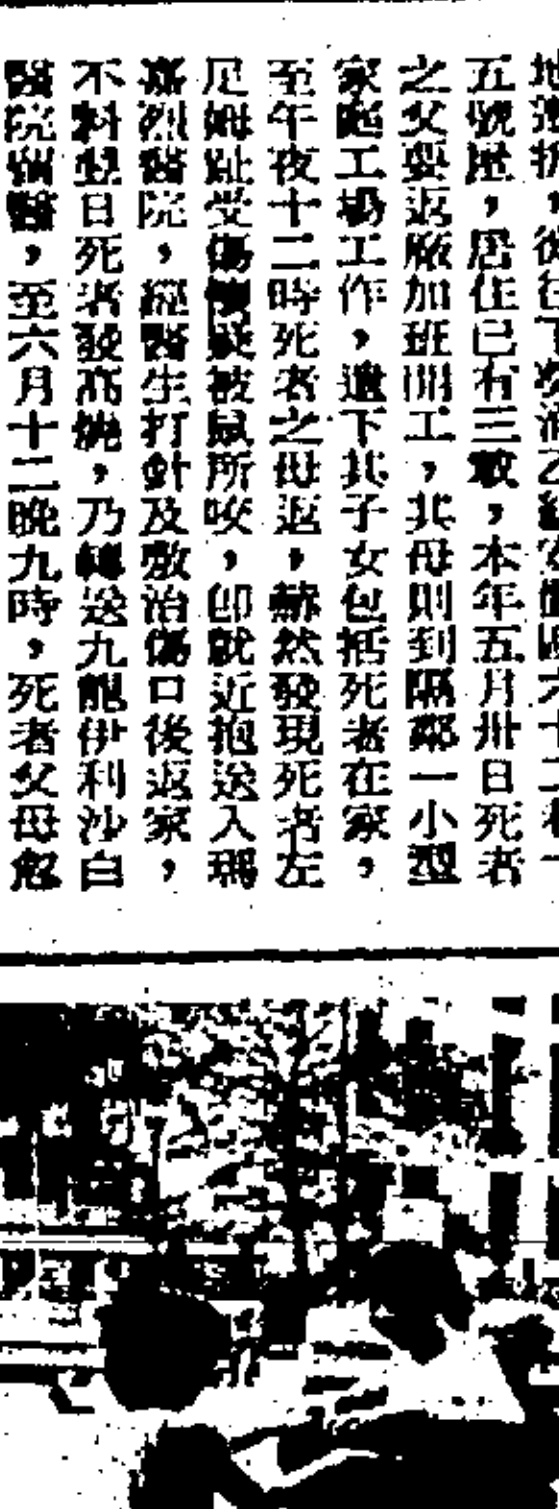 五號
，居住已有三載，本年五月卅日死者
之父要返廠加班開工，其母則到隔鄰一小型
家庭工場工作，遺下其子女包括死者在家，
至午夜十二時死者之母返，赫然發現死者左
足姆趾受傷懷疑被鼠所咬，即就近抱送入瑪
嘉烈醫院，經醫生打針及敷治傷口後返家，
不料翌日死者發高燒，乃轉送九龍伊利沙白
醫院留醫，至六月十二晚九時，死者父母愈